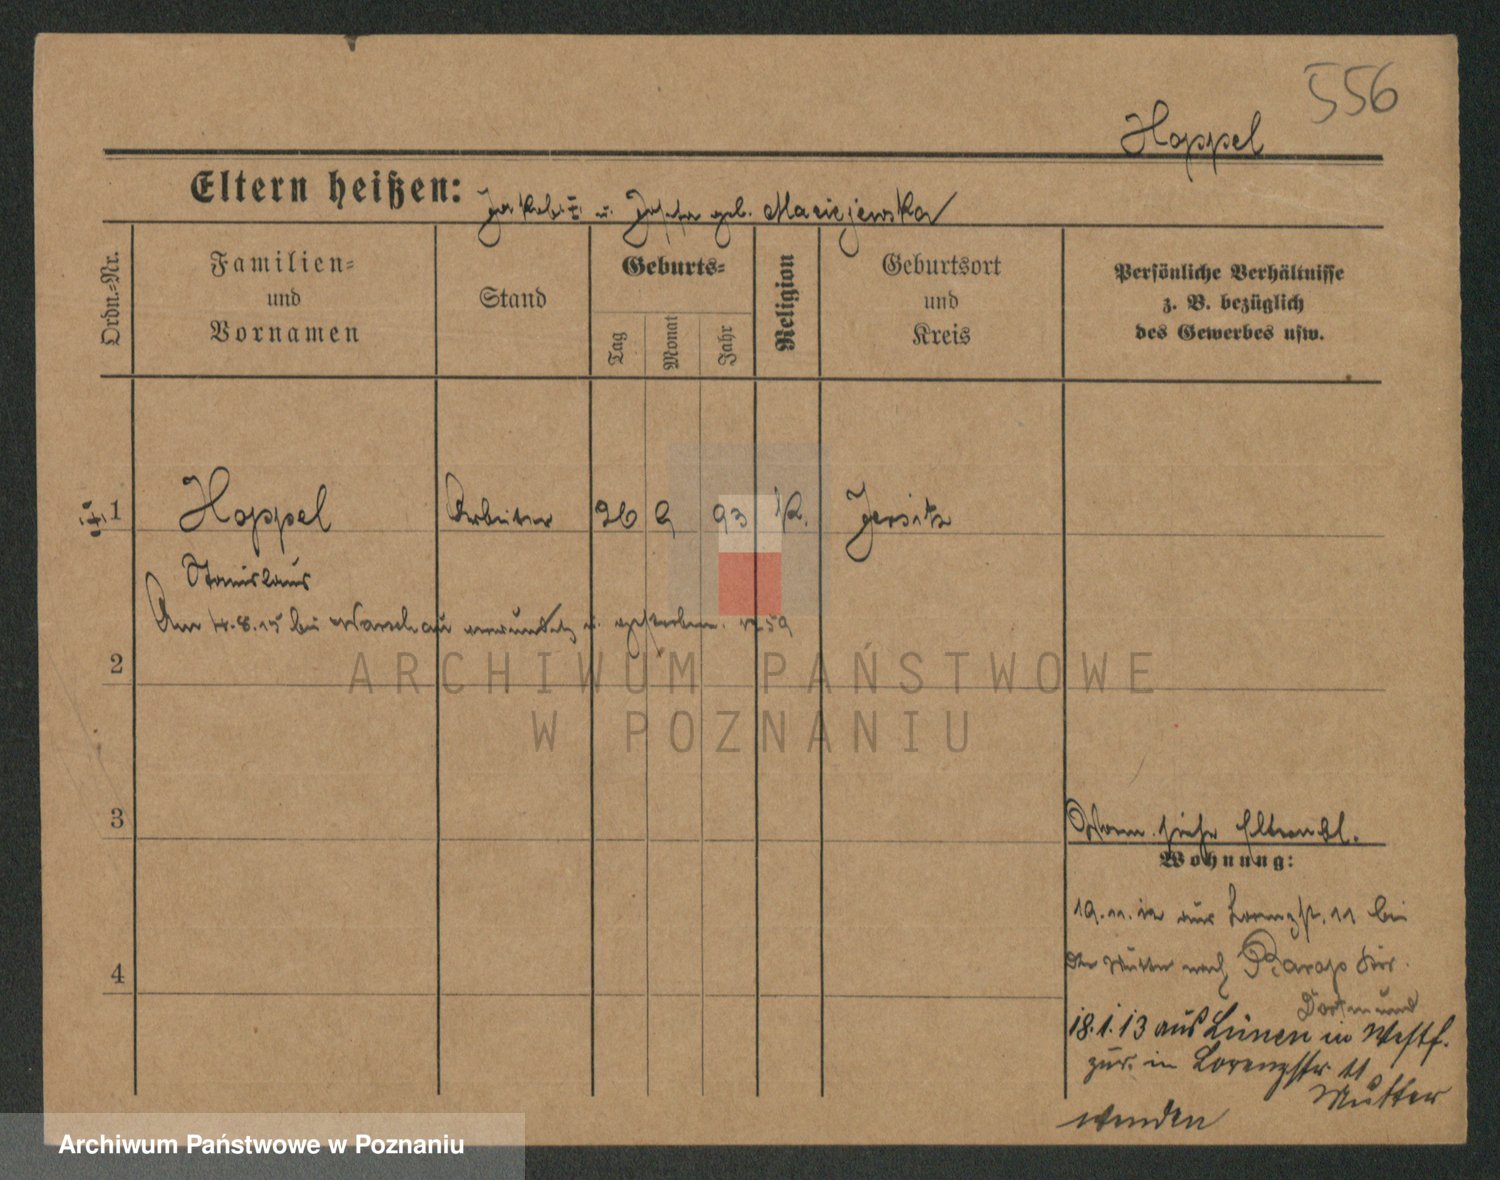 556
Hoppel
Eltern heißen: Jakob u. Josefa geb. Maciejewska
Ordn.-Nr.
Familien-
und
Vornamen
Stand
Geburts-
Tag
Monat
Jahr
Religion
Geburtsort
und
Kreis
Persönliche Verhältnisse
z. B. bezüglich
des Gewerbes usw.
1 Hoppel Arbeiter 26 9 93 K. Jersitz
Stanislaus
Am 4.8.15 bei Warschau verwundet u. gestorben.
2
3
4
siehe Elternbl.
Wohnung:
19.11.12 aus Lorenzstr. 11 bei
der Mutter nach Rarop Kr.
Dortmund
18.1.13 aus Lünen in Westf.
zur. in Lorenzstr. 11
Mutter
wenden
ARCHIWUM PAŃSTWOWE
W POZNANIU
Archiwum Państwowe w Poznaniu